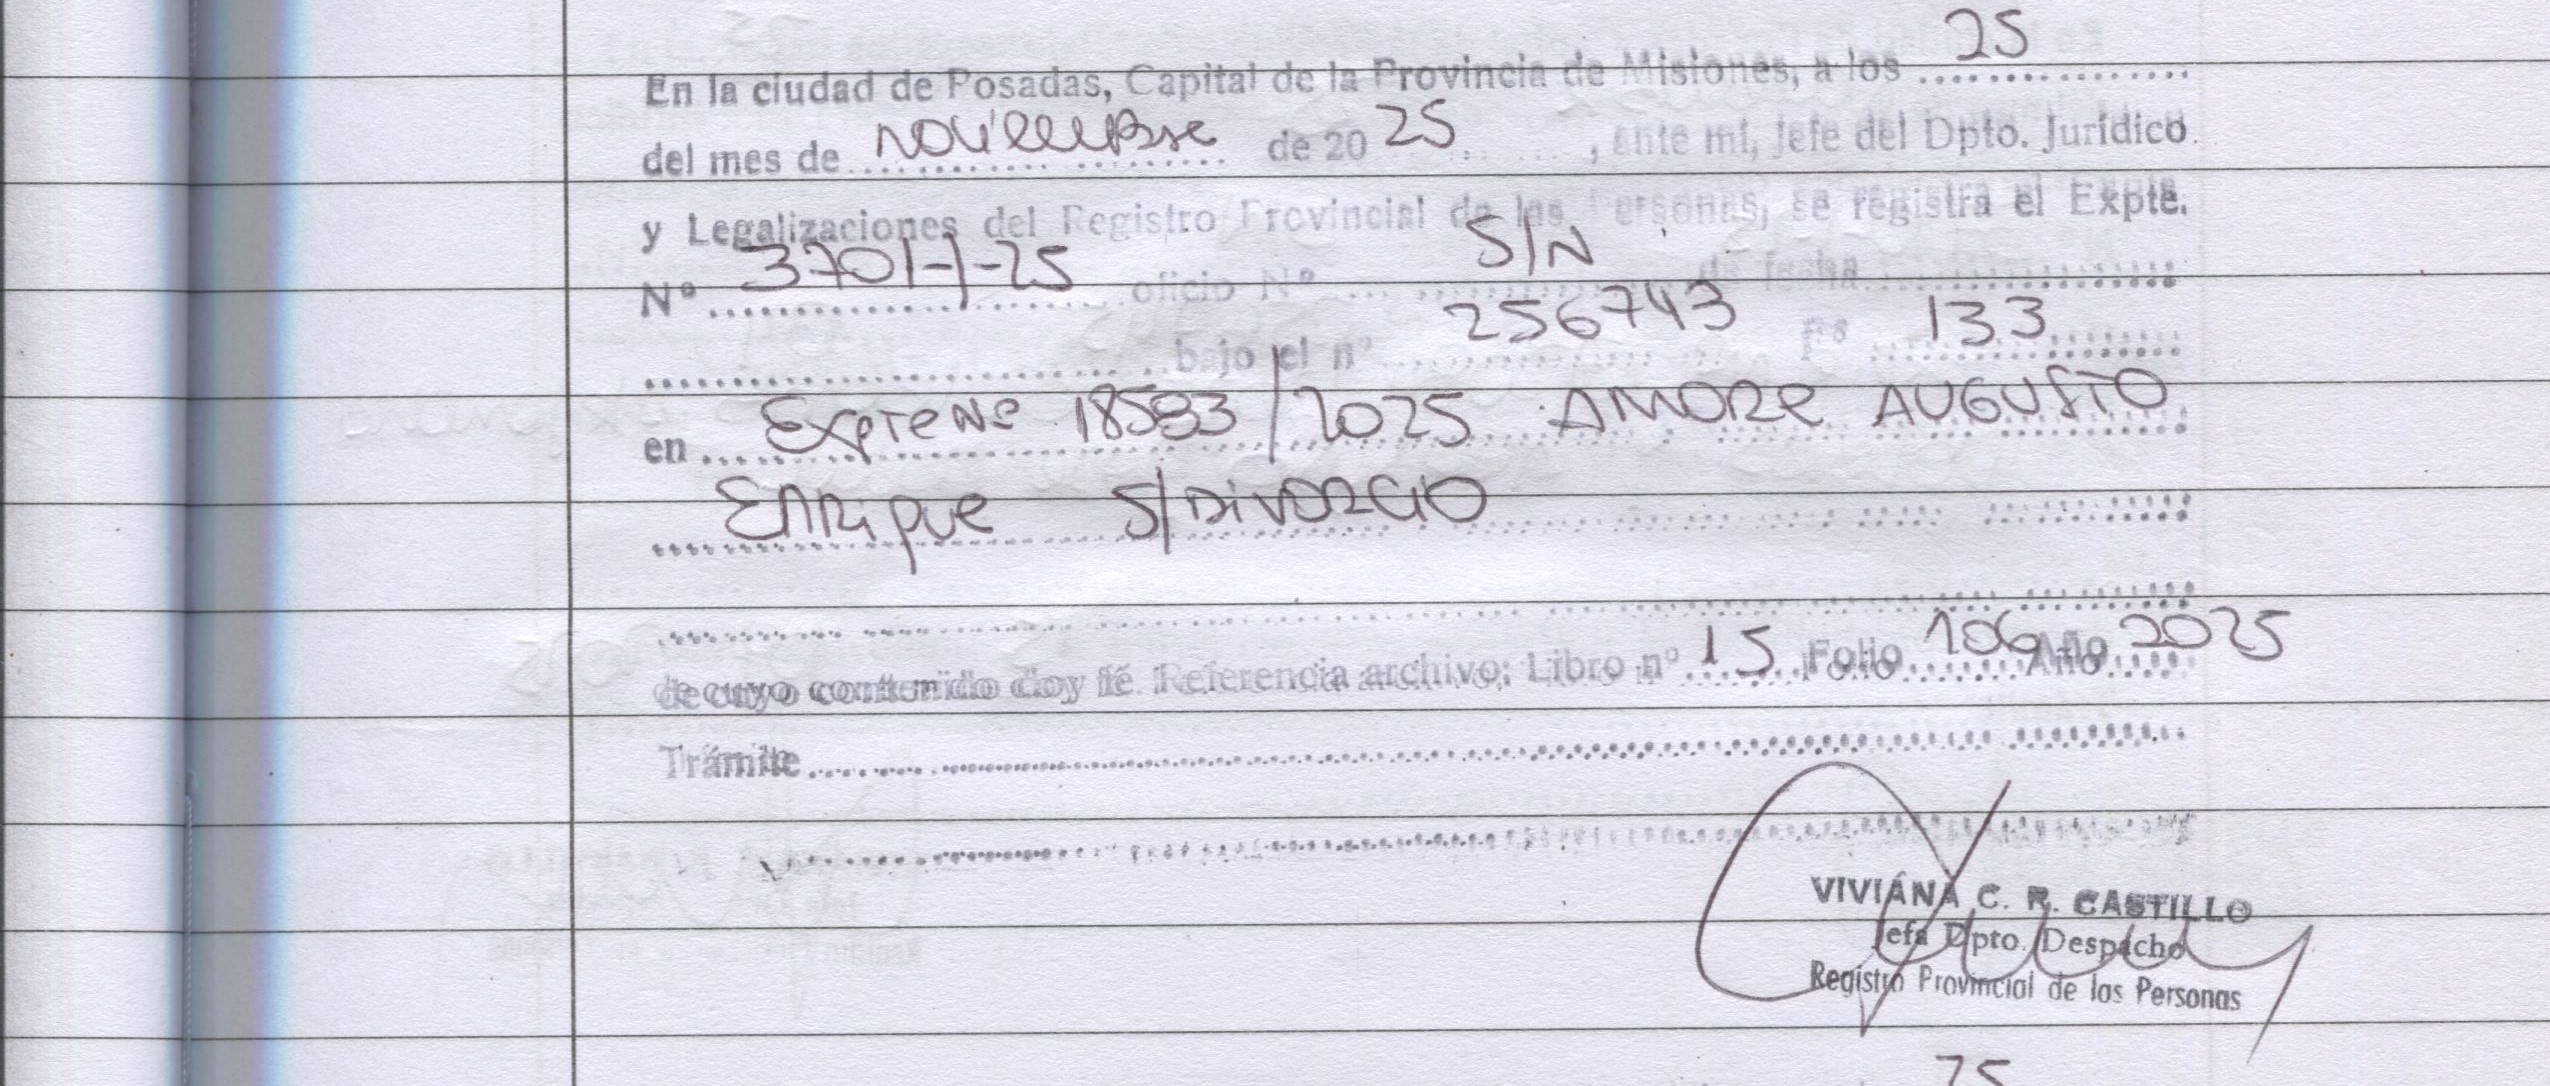 En la ciudad de Posadas, Capital de la Provincia de Misiones, a los 25
del mes de Noviembre de 20 25, ante mí, Jefe del Dpto. Jurídico
y Legalizaciones del Registro Provincial de las Personas, se registra el Expte.
Nº 3701-J-25 oficio Nº S/N de fecha
bajo el nº 256743 Fº 133
en Expte Nº 18593/2025 AMORE AUGUSTO
Enrique S/DIVORCIO
de cuyo contenido doy fé Referencia archivo: Libro nº 15 Folio 106 Año 2025
Trámite
VIVIANA C. R. CASTILLO
Jefa Dpto. Despacho
Registro Provincial de las Personas
25